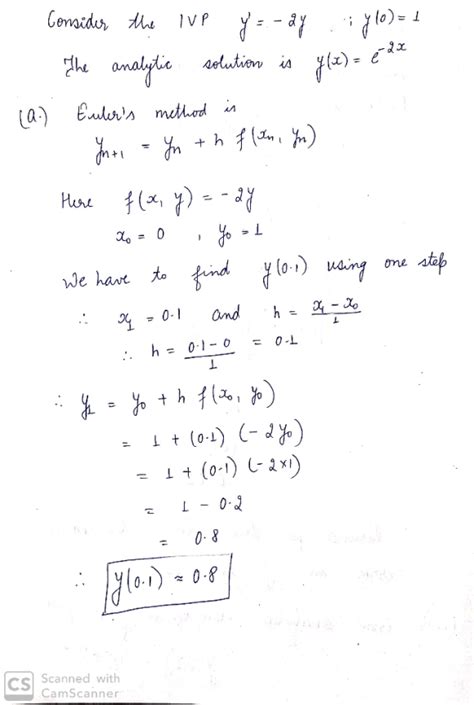 Consider the IVP y' = - 2y ; y(0) = 1
The analytic solution is y(x) = e^{-2x}
(a.) Euler's method is
y_{n+1} = y_n + h f(x_n, y_n)
Here f(x, y) = - 2y
x_0 = 0 , y_0 = 1
We have to find y(0.1) using one step
∴ x_1 = 0.1 and h = \frac{x_1 - x_0}{1}
∴ h = \frac{0.1 - 0}{1} = 0.1
∴ y_1 = y_0 + h f(x_0, y_0)
= 1 + (0.1) (- 2y_0)
= 1 + (0.1) (-2×1)
= 1 - 0.2
= 0.8
∴ y(0.1) ≈ 0.8
CS Scanned with
CamScanner